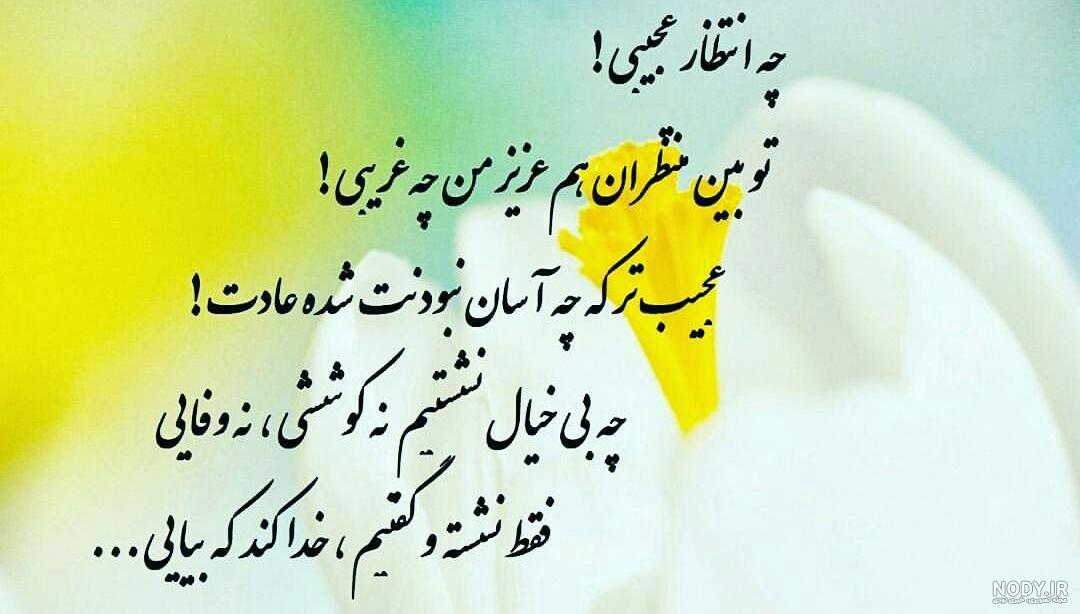 چه انتظار عجیبی!
تو بین منتظران هم عزیز من چه غریبی!
عجیب تر که چه آسان نبودنت شده عادت!
چه بی خیال نشستیم نه کوششی، نه وفایی
فقط نشسته و گفتیم، خدا کند که بیایی...
NODY.IR